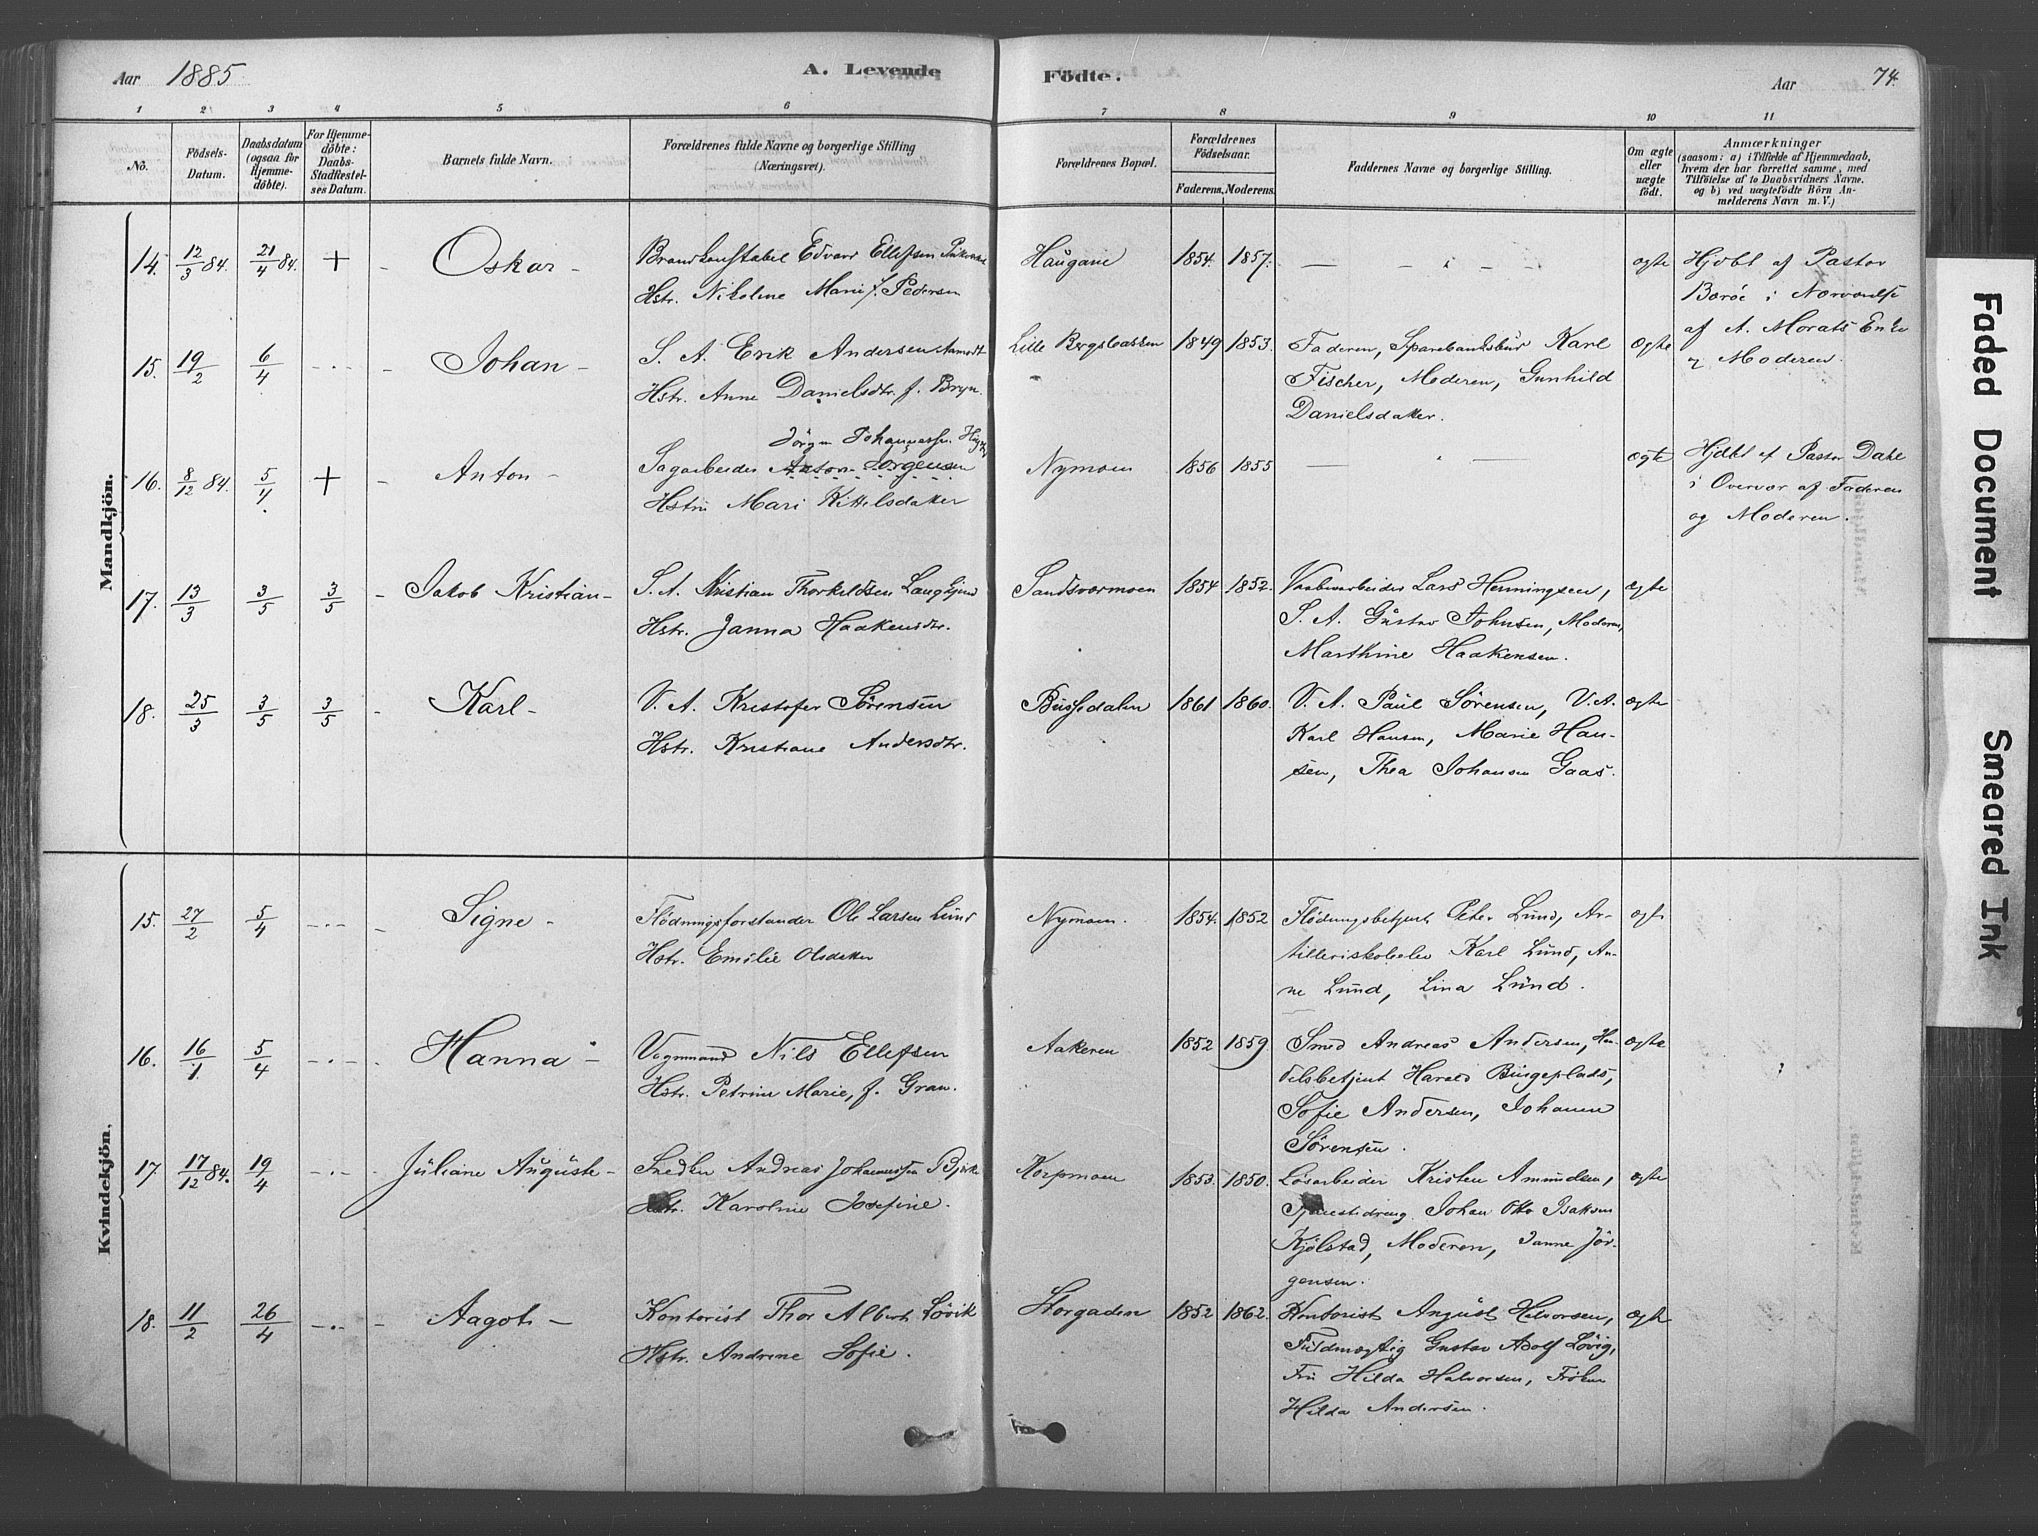 Aar 1885 A. Levende Födte. Aar 74.
1 2 3 4 5 6 7 8 9 10 11
No. Födsels-Datum. Daabsdatum (ogsaa for Hjemmedöbte). For Hjemmedöbte: Daabs-Stadfæstelses Datum. Barnets fulde Navn. Forældrenes fulde Navne og borgerlige Stilling (Næringsvei). Forældrenes Bopæl. Forældrenes Födselsaar. Faderens. Moderens. Faddernes Navne og borgerlige Stilling. Om ægte eller uægte födt. Anmærkninger (saasom: a) i Tilfælde af Hjemmedaab, hvem der har forrettet samme, med Tilföielse af to Daabsvidners Navne, og b) ved uægtefödte Börn Anmelderens Navn m. V.)
Mandkjön.
14. 12/3 84. 21/4 84. + Oskar - Brandkonstabel Edvard Ellefsen Haugane 1854. 1857. ægte Hjdbt af Pastor
Hstr. Nikoline Marie f. Pedersen Barøe i Nærværelse
af A. Morats Enke
15. 19/2 6/4 Johan - S. A. Erik Andersen Lille Bergsbakken 1849 1853. Faderen, Sparebanksbud Karl ægte
Hstr. Anne Danielsdtr. f. Bryn. Fischer, Moderen, Gunhild
Danielsdatter. & Moderen.
Jörgen Johannessen
16. 8/12 84. 5/4 + Anton - Sagarbeider Anton Jorgensen Nymoen 1856 1855 ægte Hjdbt af Pastor Dahl
Hstru Mari Kittelsdatter i Overvær af Faderen
og Moderen.
17. 13/3 3/5 3/5 - Jakob Kristian - S. A. Kristian Thorkildsen Langlund Sandsværmoen 1854 1852. Vaabenarbeider Lars Henningsen, ægte
Hstr. Janna Haakensdtr. S. A. Gustav Johnsen, Moderen,
Marthine Haakensen.
18. 25/3 3/5 3/5 - Karl - V. A. Kristofer Sørensen Bussedalen 1861 1860. V. A. Paul Sørensen, V. A. ægte
Hstr. Kristiane Andersdtr. Karl Hansen, Marie Han-
sen, Thea Johansen Gaas.
Kvindekjön.
15. 27/2 5/4 Signe - Flödningsforstander Ole Larsen Lund Nymoen. 1854. 1852 Flödningsbetjent Peter Lund, Ar- ægte
Hstr. Emilie Olsdatter tilleriskoleelev Karl Lund, An-
ne Lund, Lina Lund.
16. 16/1 5/4 Hanna - Vognmand Nils Ellefsen Aakeren 1852 1859 Smed Andreas Andersen, Han- ægte
Hstr. Petrine Marie, f. Gran. delsbetjent Harald Bürgeplads,
Sofie Andersen, Johanne
Sørensen.
17. 17/12 84. 19/4 Juliane Auguste - Snedker Andreas Johannessen Björk Korpmoen 1853. 1850. Løsarbeider Kristen Amundsen, ægte
Hstr. Karoline Josefine. Tjenestedreng Johan Otto Isaksen
Kjölstad, Moderen, Janne Jör-
gensen.
18. 11/2 26/4 Aagot - Kontorist Thor Albert Lövik Storgaden 1852 1862. Kontorist August Halvorsen, ægte
Hstr. Andrine Sofie. Fuldmægtig Gustav Adolf Lövig,
Fru Hilda Halvorsen, Frøken
Hilda Andersen.
Faded Document
Smeared Ink